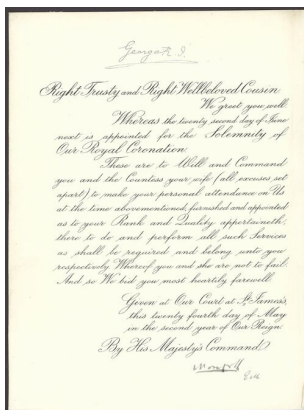 George R. I.
Right Trusty and Right Wellbeloved Cousin
We greet you well.
Whereas the twenty second day of June
next is appointed for the Solemnity of
Our Royal Coronation
These are to Will and Command
you and the Countess your wife (all excuses set
apart) to make your personal attendance on Us
at the time abovementioned, furnished and appointed
as to your Rank and Quality appertaineth;
there to do and perform all such Services
as shall be required and belong unto you
respectively. Whereof you and she are not to fail.
And so We bid you most heartily farewell.
Given at Our Court at St. James's,
this twenty fourth day of May
in the second year of Our Reign.
By His Majesty's Command.